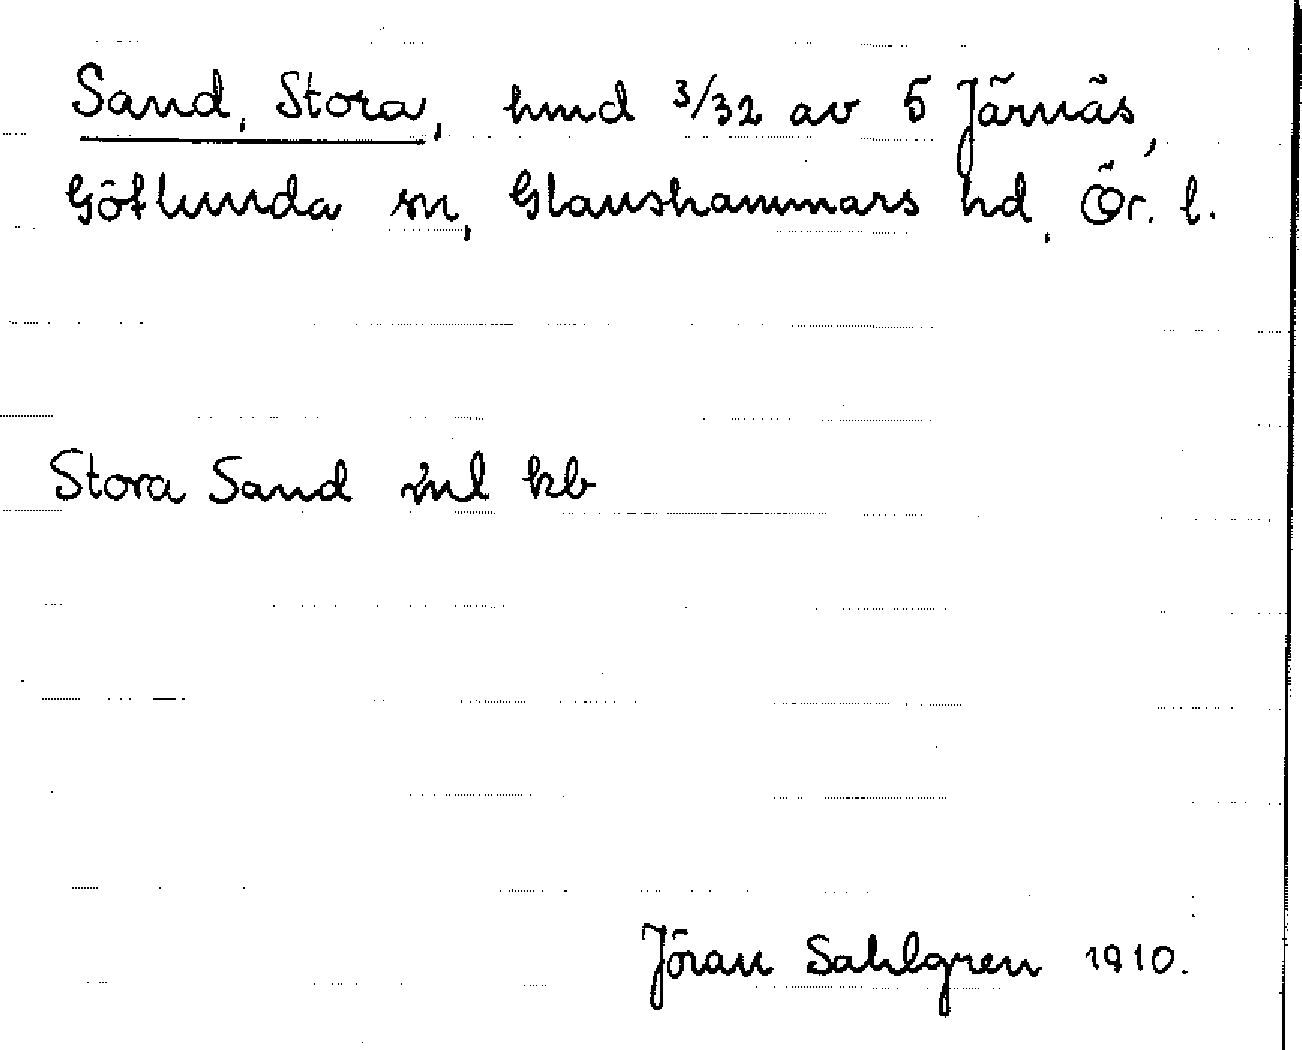 Sand, Stora, hmd 3/32 av 5 Järnäs,
Götlunda sn, Glanshammars hd, Ör. l.
Stora Sand Jnl kb
Jöran Sahlgren 1910.